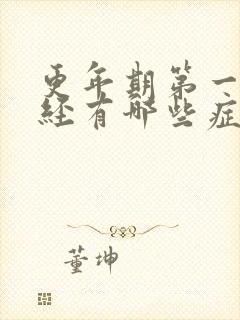 更年期第一
经有哪些症
董坤